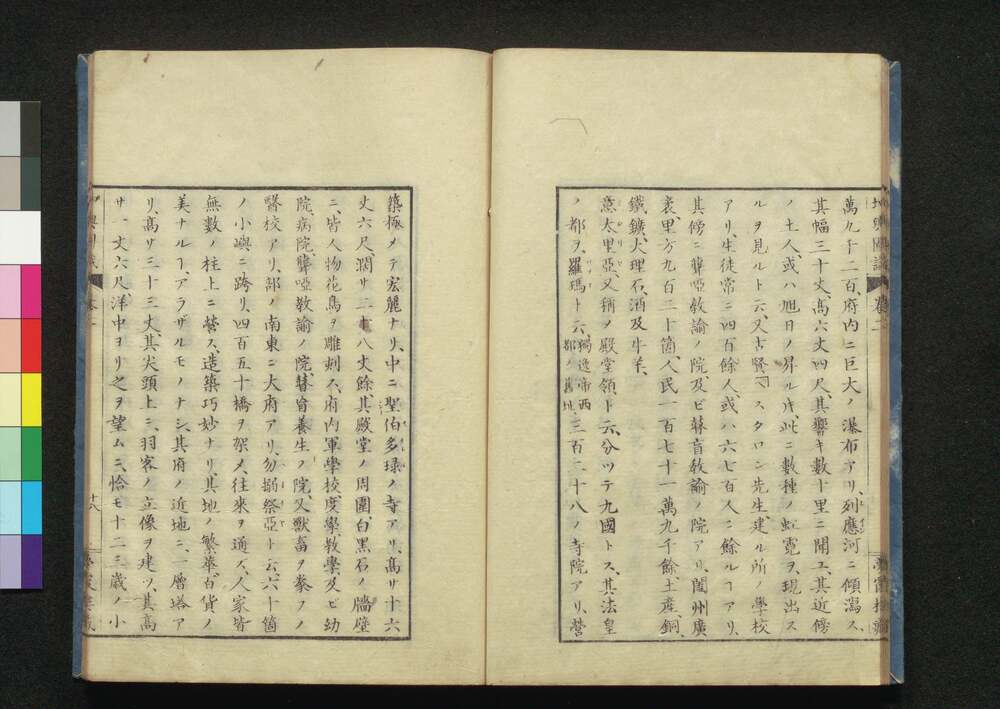 萬九千二百、府内ニ巨大ノ瀑布アリ、列應河ニ傾瀉ス、
其幅三十丈、高六丈四尺、其響キ數十里ニ聞エ、其近傍
ノ土人、或ハ旭日ノ昇ル片、此ニ數種ノ虹霓ヲ現出ス
ルヲ見ルト云、又古賢スタロン先生、建ル所ノ學校
アリ、生徒常ニ四百餘人、或ハ六七百人ニ餘ルヿアリ、
其傍ニ聾啞教諭ノ院、及ビ瞽盲教諭ノ院アリ、闔州廣
袤里方九百二十箇、人民一百七十一萬九千餘、土産銅
鐵鑛、大理石、酒及牛羊、
意太里亞、又稱ノ殿堂領ト云、分ツテ九國トス、其法皇
ノ都ヲ、羅瑪ト云、獨逸帝西都ノ舊地 三百二十八ノ寺院アリ、營
築極メテ宏麗ナリ、中ニ聖伯多琭ノ寺アリ、高サ十六
丈六尺、濶サ二十八丈餘、其殿堂ノ周圍、白黒石ノ牆壁
ニ、皆人物花鳥ヲ雕刻ス、府内軍學校、度學、教學、及ビ幼
院、病院、聾啞教諭ノ院、瞽盲養生ノ院、又獸畜ヲ拳フノ
醫校アリ、部ノ南東ニ大府アリ、勿搦祭亞ト云、六十箇
ノ小嶼ニ跨リ、四百五十橋ヲ架メ、往來ヲ通ス、人家皆
無數ノ柱上ニ營ス、造築巧妙ナリ、其地ノ繁華、百貨ノ
美ナルヿ、アラザルモノナシ、其府ノ近地ニ、一層塔ア
リ、高サ三十三丈、其尖頭上ニ、羽客ノ立像ヲ建ツ、其高
サ一丈六尺、洋中ヨリ之ヲ望ムニ、恰モ十二三歳ノ小
十八